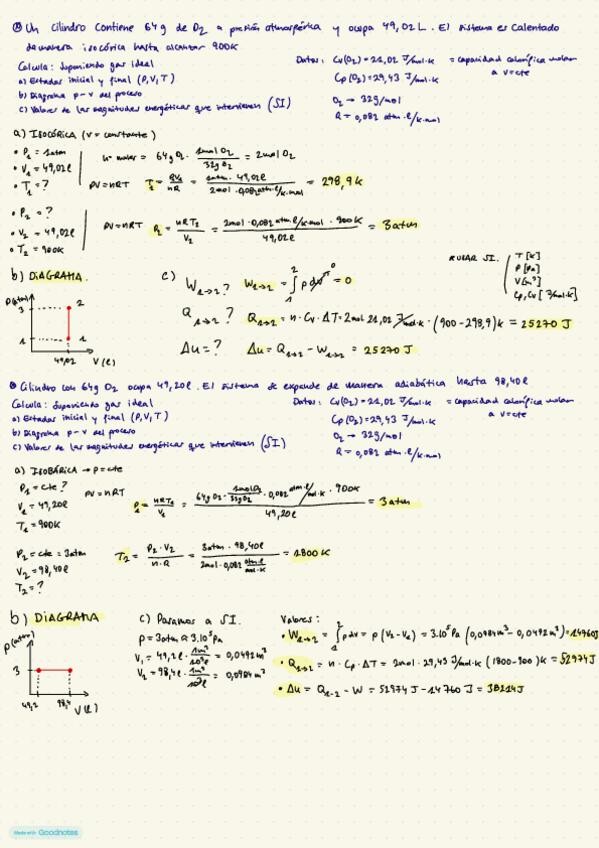 Un cilindro contiene 64g de O2 a presión atmosférica y ocupa 49,02 L. El sistema es calentado
de manera isocórica hasta alcanzar 900K
Calcula: Suponiendo gas ideal
a) Estados inicial y final (P, V, T)
b) Diagrama p-v del proceso
c) Valores de las magnitudes energéticas que intervienen (SI)
Datos: Cv(O2) = 21,02 J/mol·K = capacidad calorífica molar a v=cte
Cp(O2) = 29,43 J/mol·K
O2 → 32g/mol
R = 0,082 atm·l/K·mol
a) ISOCÓRICA (V = constante)
• P1 = 1atm
• V1 = 49,02l
• T1 = ?
n = moles = 64g O2 · 1mol O2 / 32g O2 = 2mol O2
PV = nRT T1 = PV1 / nR = 1atm · 49,02l / 2mol · 0,082 atm·l/K·mol = 298,9K
• P2 = ?
• V2 = 49,02l
• T2 = 900K
PV = nRT P2 = nRT2 / V2 = 2mol · 0,082 atm·l/K·mol · 900K / 49,02l = 3atm
b) DIAGRAMA.
P(atm)
3
2
1
1
49,02
V(l)
c) W1→2 ? W1→2 = ∫ p dv = 0
Q1→2 ? Q1→2 = n · Cv · ΔT = 2mol · 21,02 J/mol·K · (900 - 298,9)K = 25270 J
Δu = ? Δu = Q1→2 - W1→2 = 25270 J
SI.
T [K]
P [Pa]
V [m³]
Cp, Cv [J/mol·K]
Cilindro con 64g O2 ocupa 49,20l. El sistema se expande de manera adiabática hasta 98,40l
Calcula: Suponiendo gas ideal
a) Estados inicial y final (P, V, T)
b) Diagrama p-v del proceso
c) Valores de las magnitudes energéticas que intervienen (SI)
Datos: Cv(O2) = 21,02 J/mol·K = capacidad calorífica molar a v=cte
Cp(O2) = 29,43 J/mol·K
O2 → 32g/mol
R = 0,082 atm·l/K·mol
a) ISOBÁRICA → P=cte
P1 = cte?
V1 = 49,20l
T1 = 900K
PV = nRT P1 = nRT1 / V1 = 64g O2 · 1mol O2 / 32g O2 · 0,082 atm·l/mol·K · 900K / 49,20l = 3atm
P2 = cte = 3atm
V2 = 98,40l
T2 = ?
T2 = P2 · V2 / n·R = 3atm · 98,40l / 2mol · 0,082 atm·l/mol·K = 1800 K
b) DIAGRAMA
P(atm)
3
49,2
98,4
V(l)
c) Pasamos a SI.
P = 3atm ≈ 3·10⁵ Pa
V1 = 49,2l · 1m³ / 10³l = 0,0492m³
V2 = 98,4l · 1m³ / 10³l = 0,0984m³
Valores:
• W1→2 = ∫ p dv = p (V2 - V1) = 3·10⁵ Pa (0,0984m³ - 0,0492m³) = 14760J
• Q1→2 = n · Cp · ΔT = 2mol · 29,43 J/mol·K (1800-900)K = 52974J
• Δu = Q1-2 - W = 52974J - 14760J = 38214J
Made with Goodnotes